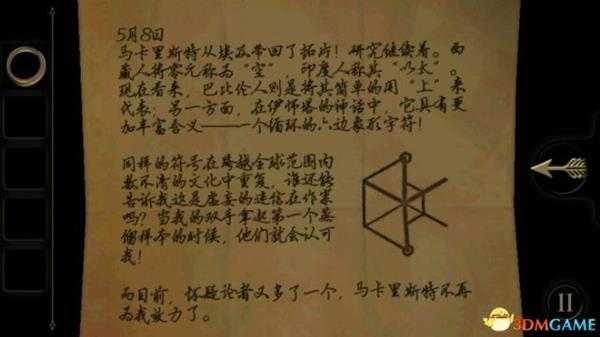 5月8日
马卡里斯特从埃及带回了拓片!研究继续着。西
藏人将零元称为“空”,印度人称其“以太”。
现在看来,巴比伦人则是将其简单的用“上”来
代表;另一方面,在伊怀塔的神话中,它具有更
加丰富含义———一个循环的六边象形字符!
同样的符号在跨越全球范围内
数不清的文化中重复,谁还能
告诉我这是虚妄的迷信在作祟
吗?当我的双手拿起第一个蒸
馏样本的时候,他们就会认可
我!
而目前,怀疑论者又多了一个,马卡里斯特不再
为我效力了。
3DMGAME